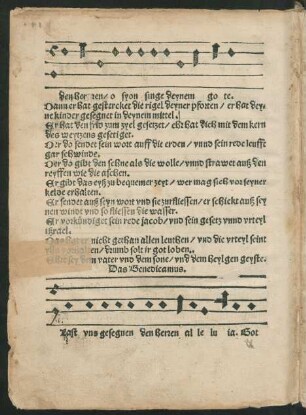 den her ren/ o syon singe deynem go te.
Wann er hat gestercket die rigel deyner pforten/ er hat dey-
ne kinder gesegnet in deynem mittel.
Er hat den frid zum zyel gesetzet/ eht hat dich mit dem kern
des weytzens gesetiget.
Der do sendet sein wort auff die erden/ vnnd sein rede leufft
gar schwinde.
Der do gibt den schne als die wolle/ vnnd strawet auß den
reyffen wie die aschen.
Er gibt das eyß zu bequemer zeyt/ wer mag sich vor seyner
kelde erhalten.
Er sendet auß seyn wort vnd sie zurfliessen/ er schickt auß sey
nen windt vnd so fliessen die wasser.
Er verkündiget sein rede jacob/ vnd sein gesetz vnnd vrteyl
ißrael.
er nicht gethan allen leuthen/ vnd die vrteyl seint
drumb solt ir got loben.
sey dem vater vnd dem sone/ vnd dem heylgen geyste.
Das Benedicamus.
Last vns gesegnen den herren al le lu ia. Got